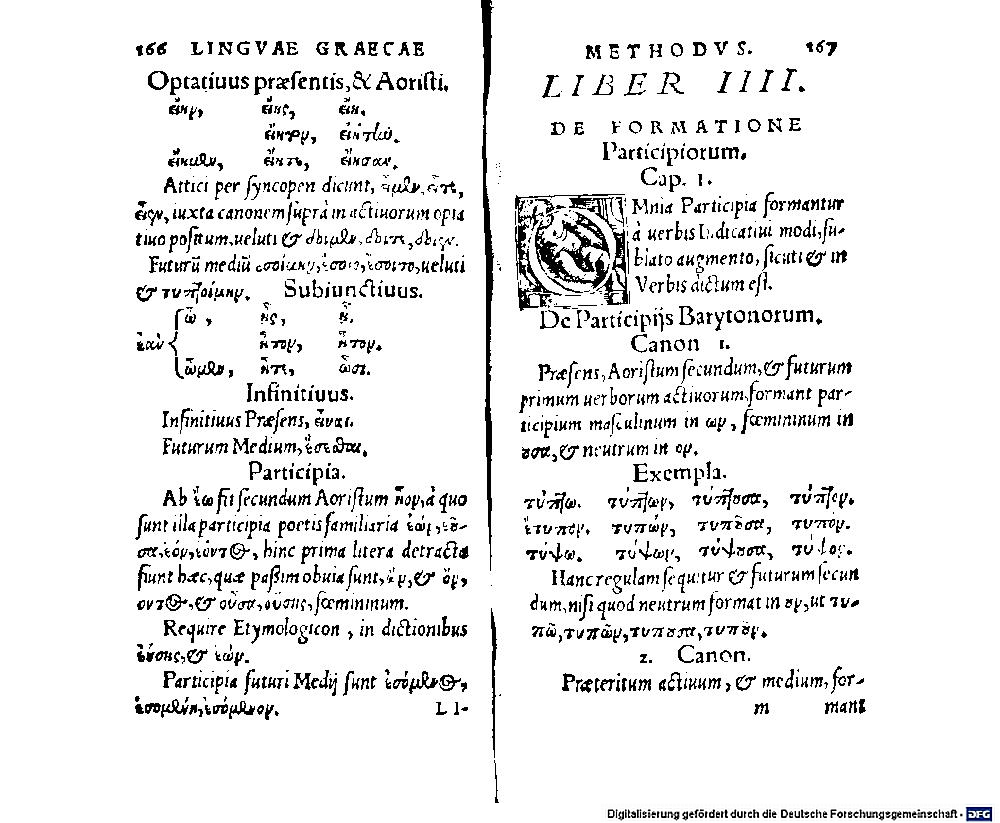 166 LINGVAE GRAECAE
Optatiuus præsentis, & Aoristi.
εἴην, εἴης, εἴη.
εἴητον, εἰήτlω.
εἴημεν, εἴητε, εἴησαν.
Attici per syncopen dicunt, εἶμεν, εἶτε,
εἶεν, iuxta canonem suprà in actiuorum opta
tiuo positum, ueluti &
Futurū mediū ἐσοίμην, ἔσοιο, ἔσοιτο, ueluti
& τυποίμην. Subiunctiuus.
ὦ, ᾖς, ᾖ.
ἐὰν ἦτον, ἦτον.
ὦμεν, ἦτε, ὦσι.
Infinitiuus.
Infinitiuus Præsens, εἶναι.
Futurum Medium, ἔσεσθαι.
Participia.
Ab ἔω fit secundum Aoristum ἦον, à quo
sunt illa participia poetis familiaria ἐὼν, ἐοῦ-
σα, ἐόν, ἐόντος, hinc prima litera detracta
fiunt hæc, quæ passim obuia sunt, ὤν, & ὄν,
οντος, & οὖσα, οὔσης, fœmininum.
Require Etymologicon, in dictionibus
& ἐών.
Participia futuri Medij sunt ἐσόμενος,
ἐσομένη, ἐσόμενον. L I-
METHODVS. 167
LIBER IIII.
DE FORMATIONE
Participiorum.
Cap. I.
OMnia Participia formantur
à uerbis Indicatiui modi, su-
blato augmento, sicuti & in
Verbis dictum est.
De Participijs Barytonorum.
Canon 1.
Præsens, Aoristum secundum, & futurum
primum uerborum actiuorum, formant par-
ticipium masculinum in ων, fœmininum in
ουσα, & neutrum in ον.
Exempla.
τύπτω. τύπτων, τύπτουσα, τύπτον.
ἔτυπον. τυπών, τυποῦσα, τυπον.
τύψω. τύψων, τύψουσα, τύψον.
Hanc regulam sequitur & futurum secun
dum, nisi quod neutrum format in ουν, ut τυ-
πῶ, τυπῶν, τυπουσα, τυποῦν.
2. Canon.
Præteritum actiuum, & medium, for-
m mant
Digitalisierung gefördert durch die Deutsche Forschungsgemeinschaft - DFG